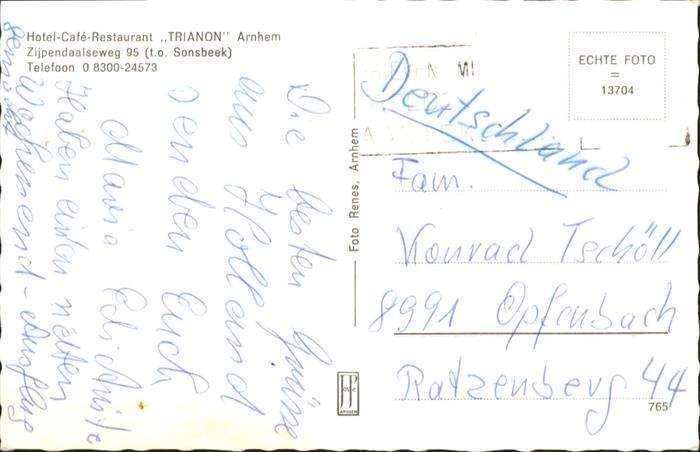 Hotel-Café-Restaurant „TRIANON" Arnhem
Zijpendaalseweg 95 (t.o. Sonsbeek)
Telefoon 0 8300-24573
Die besten Grüsse
aus Holland
senden Euch
Maria Edith
Haben einen netten
Wochenend-Ausflug
gemacht
Foto Renes, Arnhem
MI
ECHTE FOTO
=
13704
Deutschland
Fam.
Konrad Tschöll
8991 Opfenbach
Ratzenberg 44
765